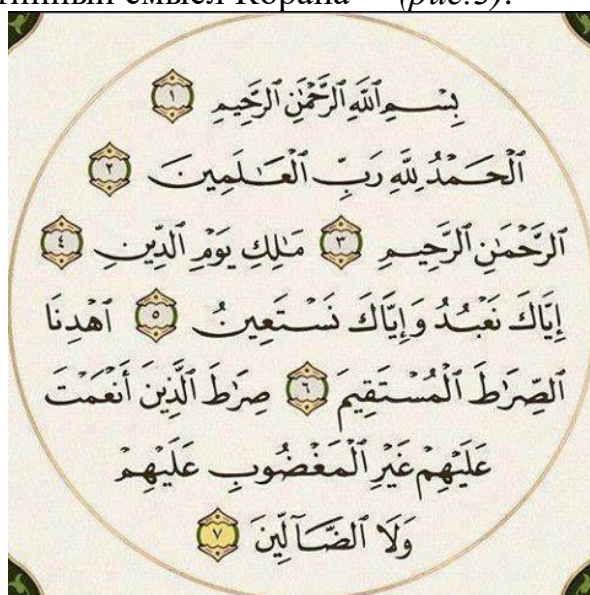 смысл Корана (рис.3).
بِسْمِ ٱللَّهِ ٱلرَّحْمَٰنِ ٱلرَّحِيمِ ١
ٱلْحَمْدُ لِلَّهِ رَبِّ ٱلْعَٰلَمِينَ ٢
ٱلرَّحْمَٰنِ ٱلرَّحِيمِ ٣ مَٰلِكِ يَوْمِ ٱلدِّينِ ٤
إِيَّاكَ نَعْبُدُ وَإِيَّاكَ نَسْتَعِينُ ٥ ٱهْدِنَا
ٱلصِّرَٰطَ ٱلْمُسْتَقِيمَ ٦ صِرَٰطَ ٱلَّذِينَ أَنْعَمْتَ
عَلَيْهِمْ غَيْرِ ٱلْمَغْضُوبِ عَلَيْهِمْ
وَلَا ٱلضَّآلِّينَ ٧